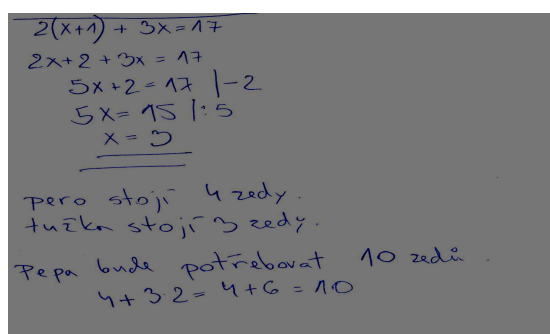 2(x+1) + 3x = 17
2x + 2 + 3x = 17
5x + 2 = 17 |-2
5x = 15 |:5
x = 3
pero stojí 4 zedy.
tužka stojí 3 zedy.
Pepa bude potřebovat 10 zedů.
4 + 3·2 = 4 + 6 = 10